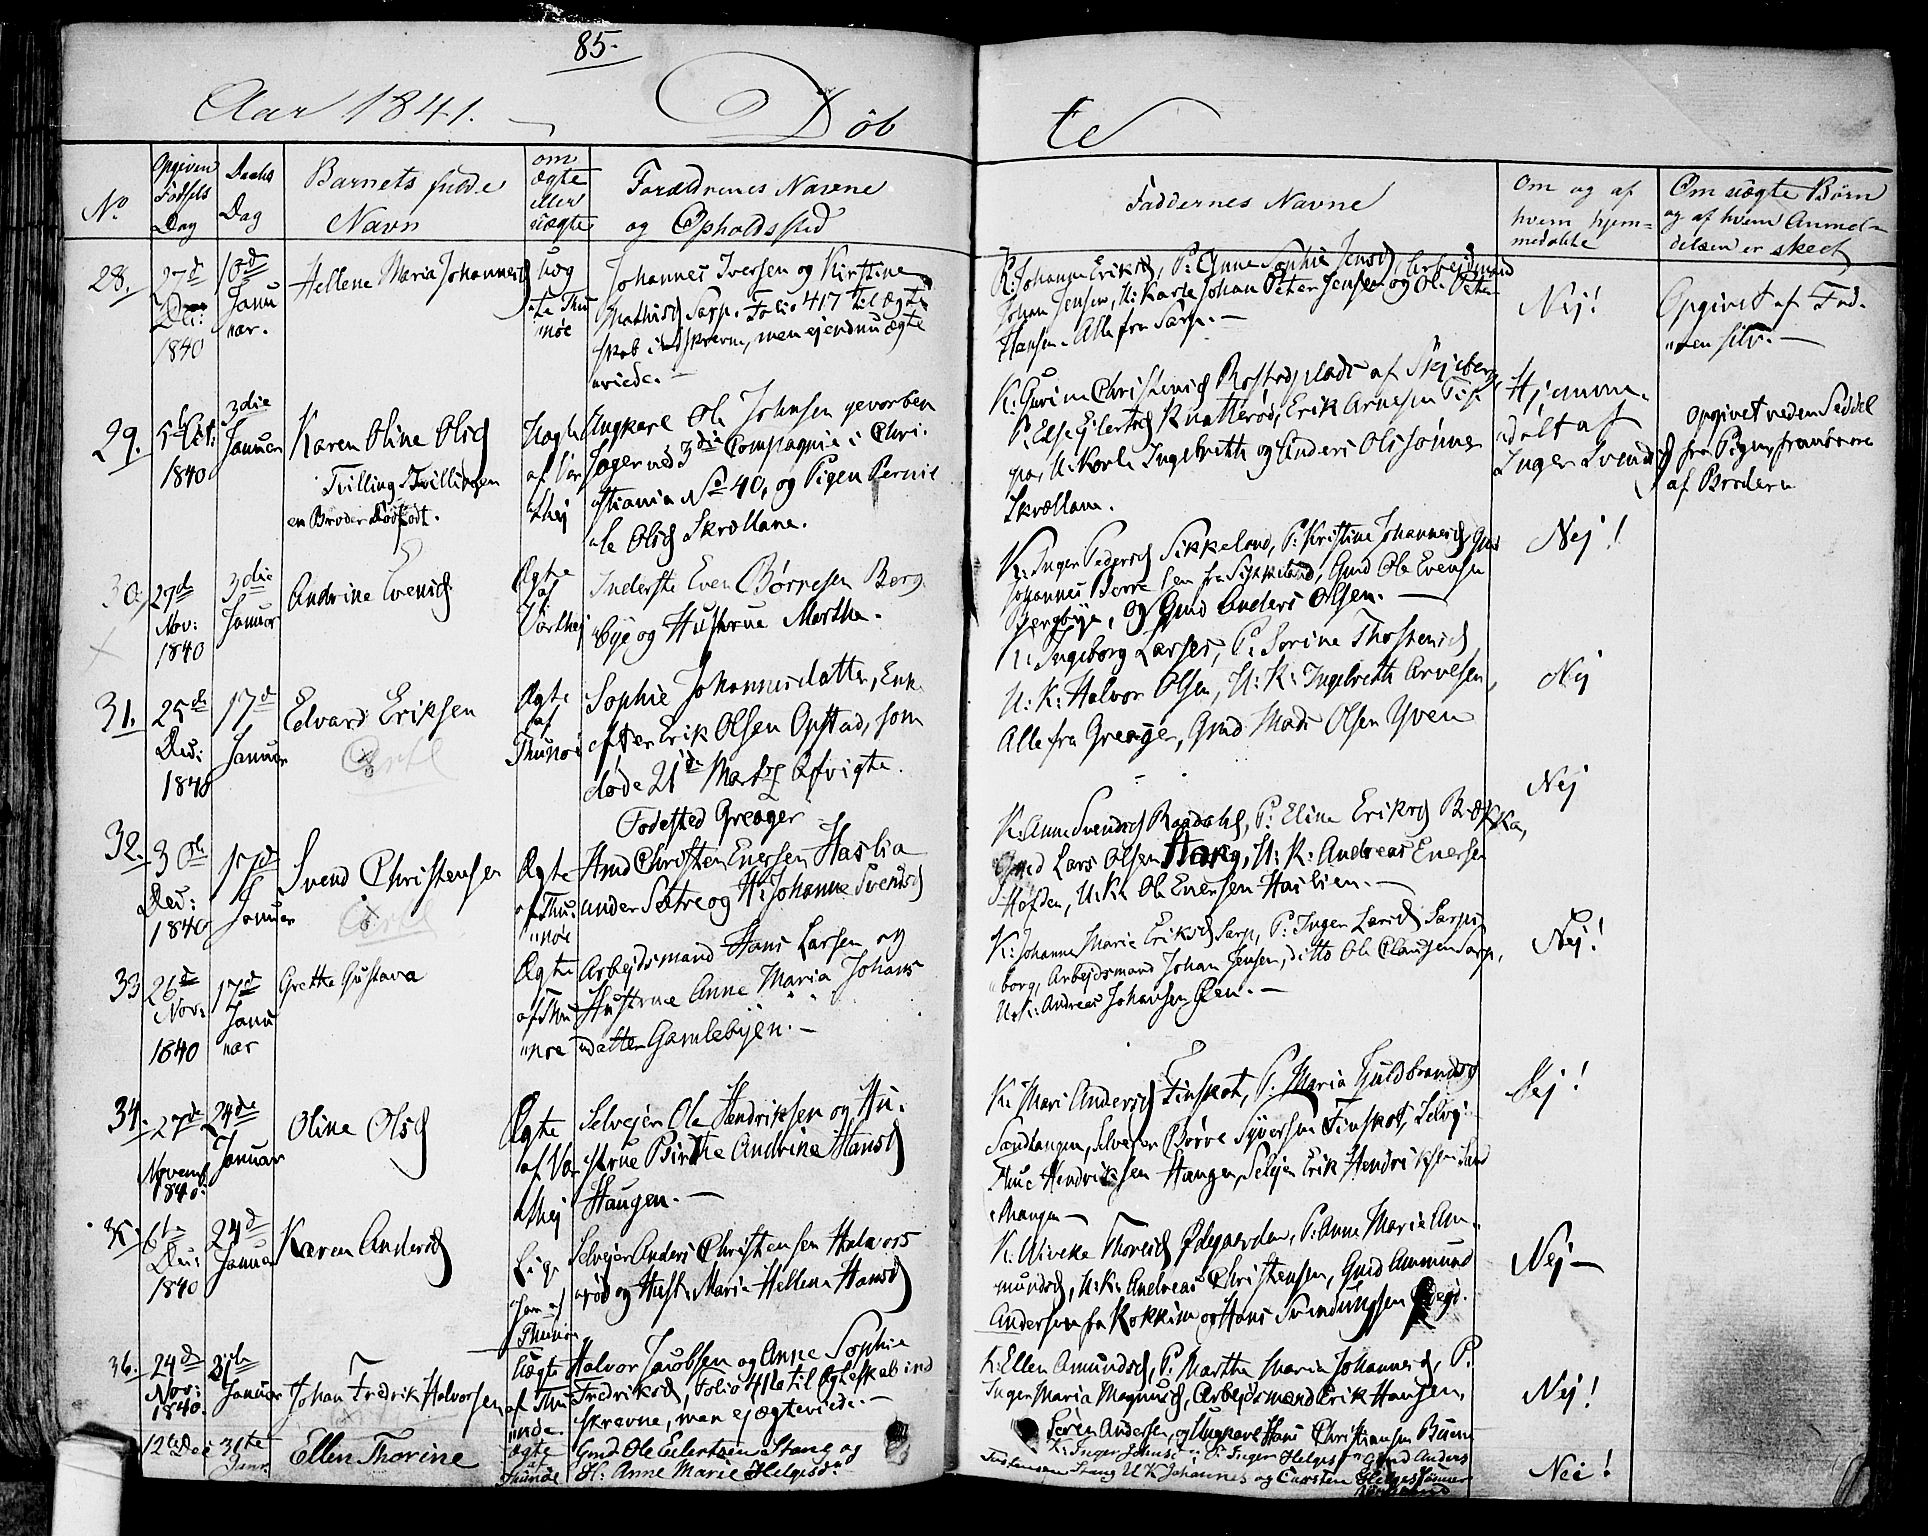 85.
Aar 1841. Døb te
No
Opgiven Fødsels Dag
Daabs Dag
Barnets fulde Navn
om ægte eller uægte
Forældrenes Navne og Opholdssted
Faddernes Navne
Om og af hvem hjemmedøbte
Om uægte Børn og af hvem Anmeldelsen er skeet
28.
27d
1840
Janu
uar.
Hellene Maria Johannesd
Uæg
te Thu
nøe
Johannes Iversen og Kirstine
Mathisd Sarp. Folio 417 til Ægte
skab indskrevne, men ej endnu ægte
viede.
K: Johanne Eriksd, P: Anne Sophie Jensd, Arbejdsmand
Johan Jensen, U: Karle Johan Peter Jensen og Ole Peter
Hansen. Alle fra Sarp.
Nej!
Opgivet af Fad-
eren selv.
29.
1840
3die
Januar
Karen Oline Olsd
Tvilling Tvillingen
en Broder Dødfødt.
Uægte
af Var
thej
Ungkarl Ole Johnsen gevorben
Jæger ved 3die Compagnie i Chri-
stiania No 40, og Pigen Pernil
le Olsd Skrællane.
K: Guri Christensd Rostadplads af Skjeberg
P: Else Ejlertsd Knatterød, Erik Arnesen
U: Karle Ingebreth og Anders Olssønner
Skrællane.
Hjemme-
døbt af
Inger Svendsd
Opgivet ved en Seddel
fra Pigen frembaaren
af Broderen
30.
29de
Nov:
1840
3die
Januar
Andrine Evensd
Ægte
af
Varthej
Inderste Even Børresen Berg
bye og Hustrue Marthe.
K: Inger Pedersd Sikkeland, P: Kristine Johannesd,
Johannes Børresen fra Sikkeland, Gmd Ole Evensen
Bergbye, og Gmd Anders Olsen.
Nej!
31.
25de
Dec:
1840
17d
Januar
Edvard Eriksen
Ægte
af
Thunøe
Sophie Johannesdatter, Enke
efter Erik Olsen Opstad, som
døde 21de Marts Afvigte.
Fødested Greager
Ingeborg Larsd, P: Sorine Thostensd
U: K: Halvor Olsen, U: K: Ingebreth Arvesen,
Alle fra Greager, Gmd Mads Olsen Yven
Nej
32.
30
Dec:
1840
17d
Januar
Svend Christensen
Ægte
af Thu
nøe
Hmd Christen Enersen Haslia
under Sætre og H: Johanne Svendsd
K: Anne Svendsd Raadahl, P: Eline Eriksd Bækka,
Gmd Lars Olsen Haug, U: K: Andreas Enersen
Høfden, U: K: Ole Enersen Haslien.
Nej
33
26d
Nov:
1840
17d
Janu
uar
Grethe Gustava
Ægte
af Thu
nøe
Arbejdsmand Hans Larsen og
Hustrue Anne Maria Johans
datter Gamlebyen.
K: Johanne Marie Eriksd Sarp, P: Inger Larsd Sarps
borg, Arbejdsmand Johan Jensen, ditto Ole Clausen Sarp,
U: K: Andreas Johansen Øen.
Nej!
34.
27d
Novemb
1840.
24de
Januar
Oline Olsd
Ægte
af Va
thej
Selvejer Ole Hendriksen og Hu
strue Birthe Andrine Hansd
Haugen.
K: Mari Andersd Finskot, P: Maria Guldbrandsd
Sandhaugen, Selvejer Børre Syversen Finskot, Selvej
Hendriksen Haugen, Selvejer Erik Hendriksen Sand
haugen
Nej!
35.
Dec:
1840
24d
Januar
Karen Andersd
Lige
som af
Thunøe
Selvejer Anders Christensen Halvors
rød og Hust: Marie Hellena Hansd
K: Wiveke Thoresd Ødegaarden, P: Anne Marie Am
mundsd, U: K: Andreas Christensen, Gmd Ammund
Andersen fra Kokkim og Hans
Nej
36.
24d
Nov:
1840.
31te
Januar
Johan Fredrik Halvorsen
Uægte
af Thu
nøe.
Halvor Jacobsen og Anne Sophie
Fredriksd, Folio 418 til Ægteskab ind
skrevne, men ej ægteviede.
K: Ellen Amundsd, P: Marthe Maria Johannesd, P:
Inger Maria Magnusd, Arbejdsmand Erik Hansen,
Søren Andersen, og Ungkarl Hans Christiansen
Nej!
12te Dec
31te
Janr.
Ellen Thorine
ægte
af
Thunøe
Gmd Ole Eilertsen Stang og
H: Anne Marie Helgesdr
K: Inger P: Inger Helgesdr Gmd Anders
Stang U K Johannes og Carsten Helgessønner
Nei!